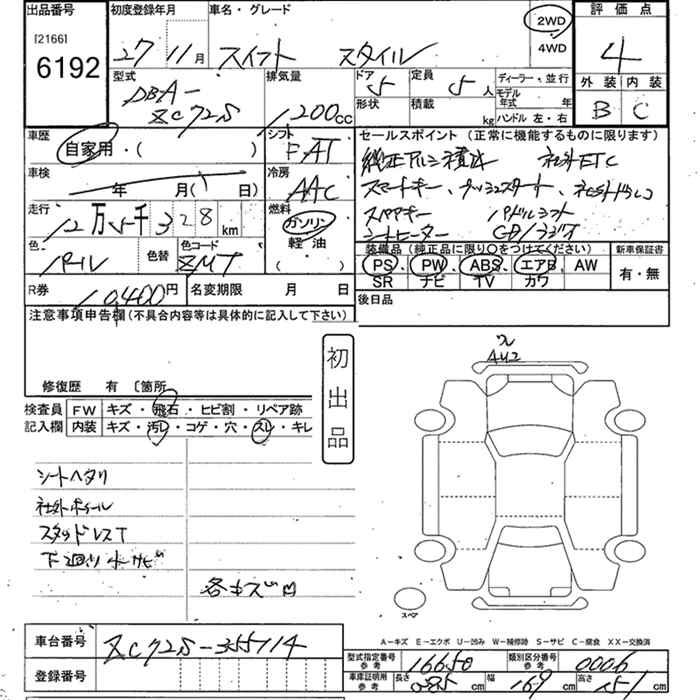 出品番号 初度登録年月 車名・グレード 2WD 評価点
[2166]
6192 27 11月 スイフト スタイル 4WD 4
型式 排気量 ドア 定員 ディーラー・並行 外装 内装
DBA- 5 5人 モデル年式 年
ZC72S 1200cc 形状 積載 kg ハンドル 左・右 B C
車歴 シフト セールスポイント(正常に機能するものに限ります)
自家用・( ) FAT 純正アルミ積込 社外ETC
車検 冷房 スマートキー、プッシュスタート、社外ドラレコ
年 月( 日) AAC スペアキー パドルシフト
走行 燃料 シートヒーター
12万5千328km ガソリン 装備品(純正品に限り○をつけてください) 新車保証書
色 色替 色コード 軽油 PS・PW・ABS・エアB・AW 有・無
パール ZMT ( ) SR ナビ TV カワ
R券 10,400円 名変期限 月 日 後日品
注意事項申告欄(不具合内容等は具体的に記入して下さい)
初出品
A42
修復歴 有 〔箇所
検査員 FW キズ・飛石・ヒビ割・リペア跡
記入欄 内装 キズ・汚レ・コゲ・穴・スレ・キレ
シートヘタリ
社外ホイール
スタッドレスT
下廻り小サビ
各キズ凹
スペア
A-キズ E-エクボ U-凹み W-補修跡 S-サビ C-腐食 XX-交換済
車台番号 ZC72S-355714 型式指定番号 参考 16650 類別区分番号 参考 0006
登録番号 車庫証明用 参考 長さ 385cm 幅 169cm 高さ 151cm